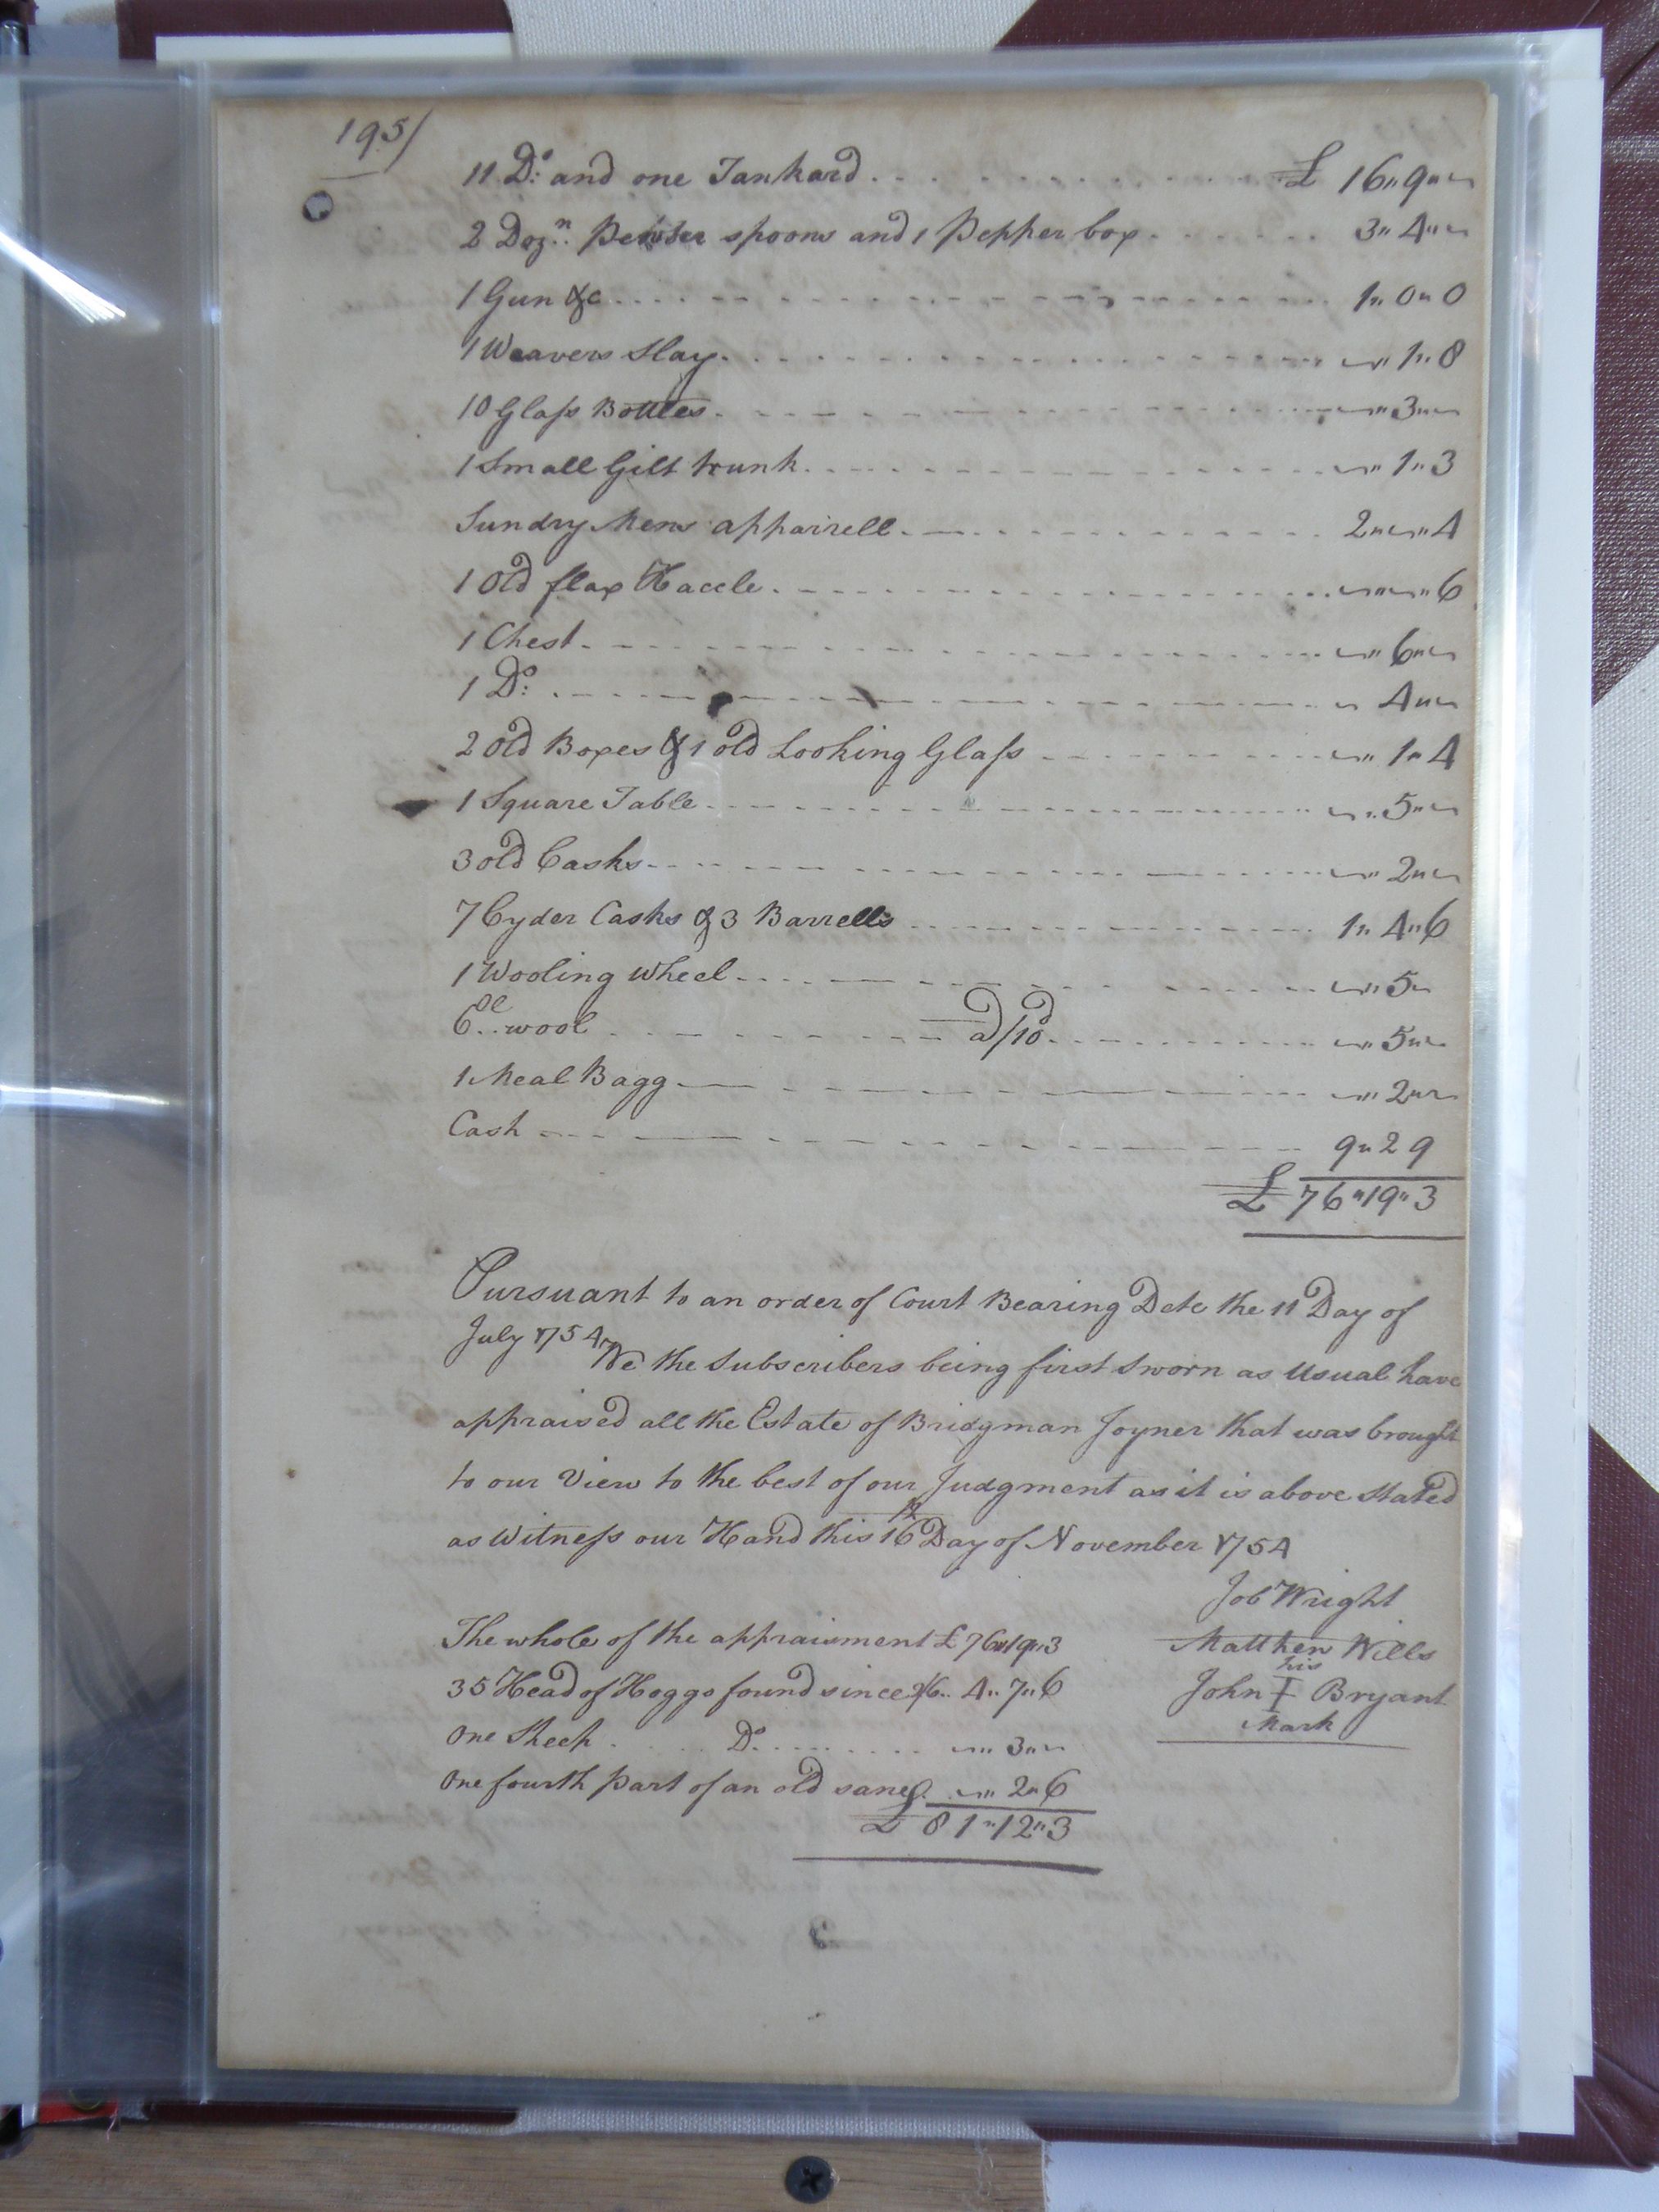 195/
11 Do: and one Tankard . . . . £ 16"9"~
2 Dozn.. Pewter spoons and 1 Pepper box . . . . 3"4"~
1 Gun &c . . . . 1"0"0
1 Weavers Slay . . . . ~"1"8
10 Glass Bottles . . . . ~"3"~
1 Small Gilt trunk . . . . ~"1"3
Sundry Mens appairell . . . . 2"~"4
1 Old flax Haccle . . . . ~"~"6
1 Chest . . . . ~"6"~
1 Do: . . . . ~ 4"~
2 old Boxes & 1 old Looking Glass . . . . ~"1"4
1 Square Table . . . . ~"5"~
3 old Casks . . . . ~"2"~
7 Cyder Casks & 3 Barrells . . . . 1"4"6
1 Wooling wheel . . . . ~"5~
6 wool . . . . a/10d . . . . ~"5"~
1 Meal Bagg . . . . ~"2"~
Cash . . . . 9"2 9
£ 76"19"3
Pursuant to an order of Court Bearing Date the 11 Day of
July 1754 We the Subscribers being first Sworn as Usual have
appraised all the Estate of Bridgman Joyner that was brought
to our View to the best of our Judgment as it is above Stated
as Witness our Hand this 16th Day of November 1754
Job Wright
The whole of the appraisment £ 76"19"3 Matthew Wills
his
35 Head of Hoggs found since 2/6.. 4"7"6 John I Bryant
Mark
One Sheep . . . . Do . . . . ~"3"~
One fourth part of an old sane ~"2"6
£ 81"12"3